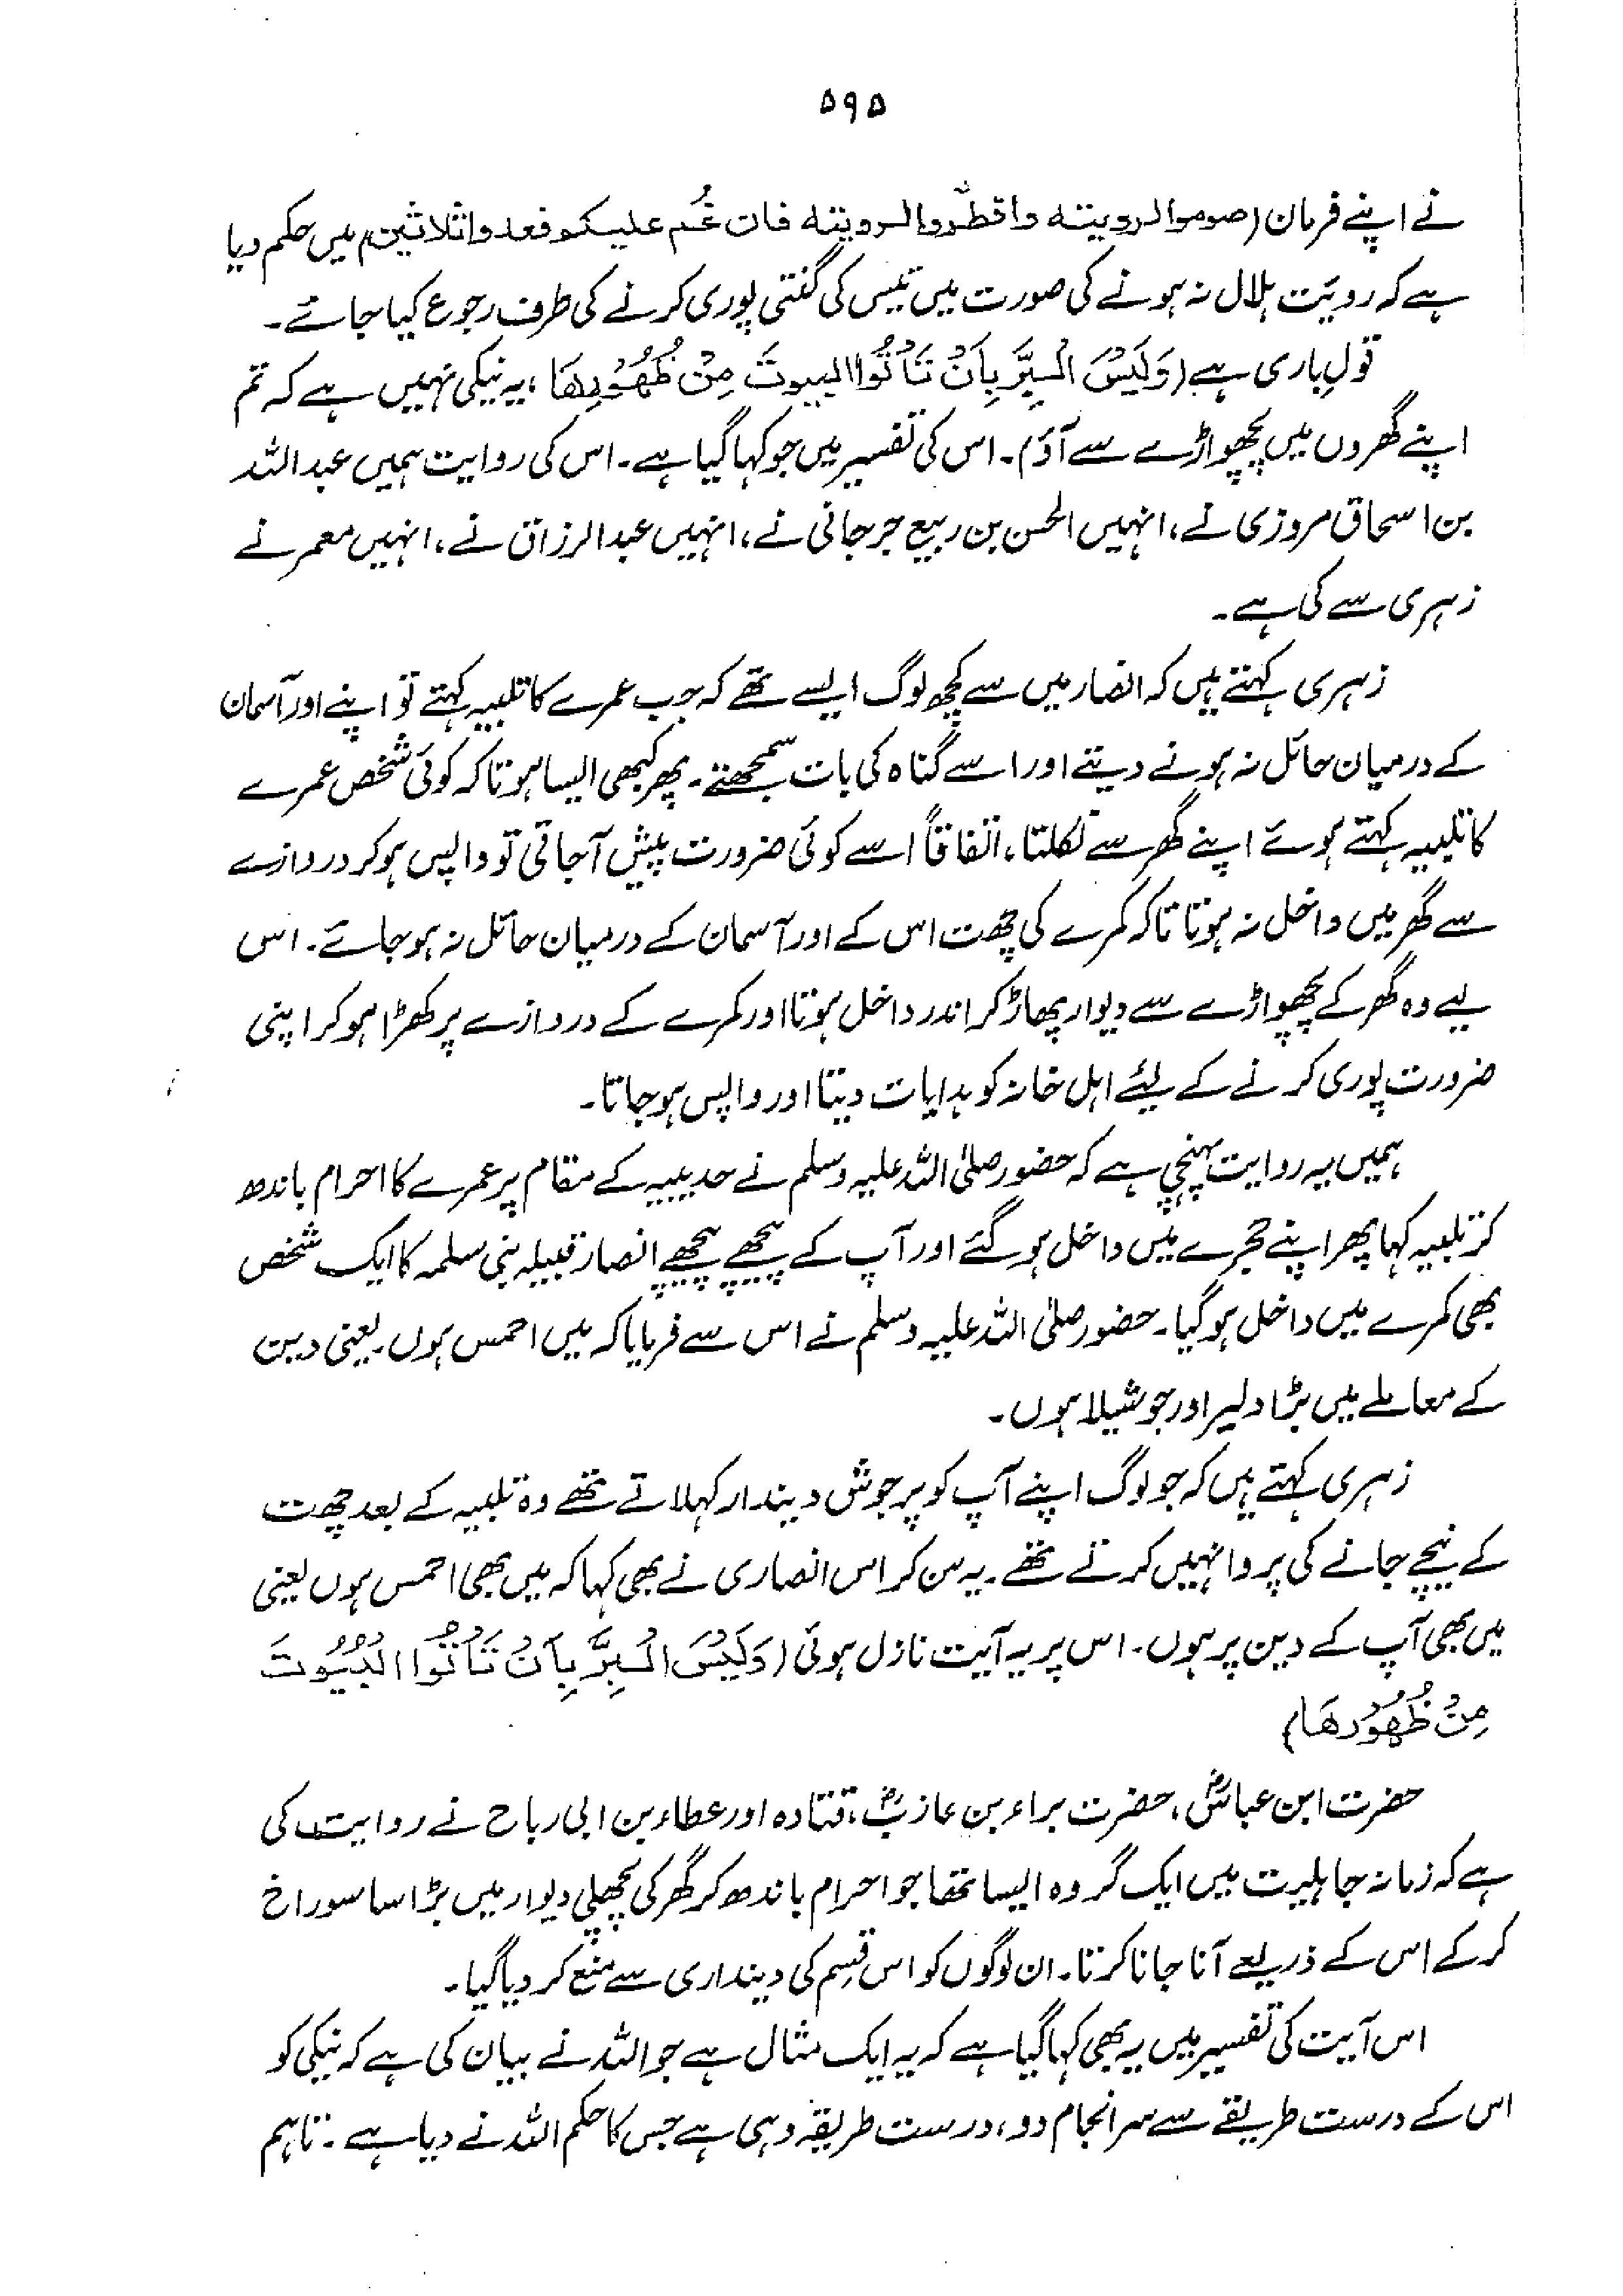 ۵۹۵
نے اپنے فرمان (صوموا لرویته وافطروا لرویته فان غُم علیکم فعدوا ثلاثین) میں حکم دیا
ہے کہ رویَت ہلال نہ ہونے کی صورت میں تیس کی گنتی پوری کرنے کی طرف رجوع کیا جائے۔
قولِ باری ہے (وَلَیْسَ الْبِرَّ بِاَنْ تَاْتُوا البیوتَ مِنْ ظُھُوْرِھَا، یہ نیکی نہیں ہے کہ تم
اپنے گھروں میں پچھواڑے سے آؤ)۔ اس کی تفسیر میں جو کہا گیا ہے۔ اس کی روایت ہمیں عبداللہ
بن اسحاق مروزی نے، انہیں الحسن بن ربیع جرجانی نے، انہیں عبدالرزاق نے، انہیں معمر نے
زہری سے کی ہے۔
زہری کہتے ہیں کہ انصار میں سے کچھ لوگ ایسے تھے کہ جب عمرے کا تلبیہ کہتے تو اپنے اور آسمان
کے درمیان حائل نہ ہونے دیتے اور اسے گناہ کی بات سمجھتے۔ پھر کبھی ایسا ہوتا کہ کوئی شخص عمرے
کا تلبیہ کہتے ہوئے اپنے گھر سے نکلتا، اتفاقاً اسے کوئی ضرورت پیش آجاتی تو واپس ہو کر دروازے
سے گھر میں داخل نہ ہوتا تا کہ کمرے کی چھت اس کے اور آسمان کے درمیان حائل نہ ہو جائے۔ اس
لیے وہ گھر کے پچھواڑے سے دیوار پھاڑ کر اندر داخل ہوتا اور کمرے کے دروازے پر کھڑا ہو کر اپنی
ضرورت پوری کرنے کے لیئے اہل خانہ کو ہدایات دیتا اور واپس ہو جاتا۔
ہمیں یہ روایت پہنچی ہے کہ حضور صلی اللہ علیہ وسلم نے حدیبیہ کے مقام پر عمرے کا احرام باندھ
کر تلبیہ کہا پھر اپنے حجرے میں داخل ہو گئے اور آپ کے پیچھے پیچھے انصار قبیلہ بنی سلمہ کا ایک شخص
بھی کمرے میں داخل ہو گیا۔ حضور صلی اللہ علیہ وسلم نے اس سے فرمایا کہ میں احمس ہوں۔ یعنی دین
کے معاملے میں بڑا دلیر اور جوشیلا ہوں۔
زہری کہتے ہیں کہ جو لوگ اپنے آپ کو پرجوش دیندار کہلاتے تھے وہ تلبیہ کے بعد چھت
کے نیچے جانے کی پروا نہیں کرتے تھے۔ یہ سن کر اس انصاری نے بھی کہا کہ میں بھی احمس ہوں یعنی
میں بھی آپ کے دین پر ہوں۔ اس پر یہ آیت نازل ہوئی (وَلَیْسَ الْبِرَّ بِاَنْ تَاْتُوا الْبُیُوتَ
مِنْ ظُھُوْرِھَا)
حضرت ابن عباسؓ، حضرت براء بن عازبؓ، قتادہ اور عطاء بن ابی رباح نے روایت کی
ہے کہ زمانہ جاہلیت میں ایک گروہ ایسا تھا جو احرام باندھ کر گھر کی پچھلی دیوار میں بڑا سا سوراخ
کر کے اس کے ذریعے آنا جانا کرتا۔ ان لوگوں کو اس قسِم کی دینداری سے منع کر دیا گیا۔
اس آیت کی تفسیر میں یہ بھی کہا گیا ہے کہ یہ ایک مثال ہے جو اللہ نے بیان کی ہے کہ نیکی کو
اس کے درست طریقے سے سرانجام دو، درست طریقہ وہی ہے جس کا حکم اللہ نے دیا ہے۔ تاہم